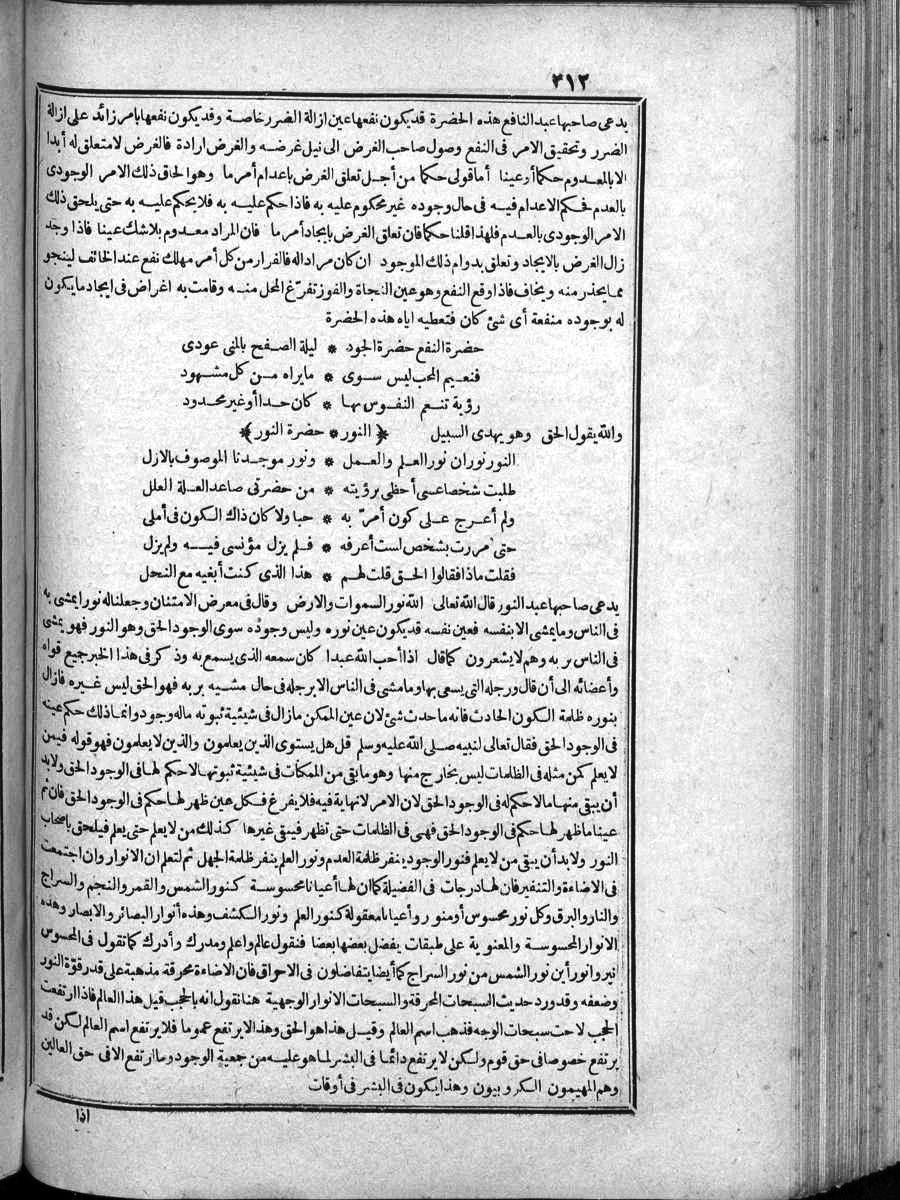 ٣١٢
يدعى صاحبها عبد النافع هذه الحضرة قد يكون نفعها عين ازالة الضرر خاصة وقد يكون نفعها بامر زائد على ازالة
الضرر وتحقيق الامر فى النفع وصول صاحب الغرض الى نيل غرضه والغرض ارادة فالغرض لامتعلق له أبدا
الا بالمعدوم حكما أو عينا أما قولى حكما من أجل تعلق الغرض باعدام أمر ما وهو الحاق ذلك الامر الوجودى
بالعدم فحكم الاعدام فيه فى حال وجوده غير محكوم عليه به فاذا حكم عليه به فلا يحكم عليه به حتى يلحق ذلك
الامر الوجودى بالعدم فلهذا قلنا حكما فان تعلق الغرض بايجاد أمر ما فان المراد معدوم بلا شك عينا فاذا وجد
زال الغرض بالايجاد وتعلق بدوام ذلك الموجود ان كان مراد اله فالفرار من كل أمر مهلك نفع عند الخائف لينجو
مما يحذر منه ويخاف فاذا وقع النفع وهو عين النجاة والفوز تفرّغ المحل منه وقامت به اغراض فى ايجاد ما يكون
له بوجوده منفعة أى شئ كان فتعطيه اياه هذه الحضرة
حضرة النفع حضرة الجود * ليلة الصفح بالمنى عودى
فنعيم المحب ليس سوى * ما يراه من كل مشهود
رؤية تنعم النفوس بها * كان حدا أو غير محدود
والله يقول الحق وهو يهدى السبيل ﴿النور * حضرة النور﴾
النور نوران نور العلم والعمل * ونور موجدنا الموصوف بالازل
طلبت شخصا عسى أحظى برؤيته * من حضرتى صاعد العلة العلل
ولم أعرج على كون أمرّ به * حبا ولا كان ذاك الكون فى أملى
حتى مررت بشخص لست أعرفه * فلم يزل مؤنسى فيه ولم يزل
فقلت ماذا فقالوا الحق قلت لهم * هذا الذى كنت أبغيه مع النحل
يدعى صاحبها عبد النور قال الله تعالى الله نور السموات والارض وقال فى معرض الامتنان وجعلنا له نورا يمشى به
فى الناس وما يمشى الا بنفسه فعين نفسه قد يكون عين نوره وليس وجوده سوى الوجود الحق وهو النور فهو يمشى
فى الناس بربه وهم لا يشعرون كما قال اذا أحب الله عبدا كان سمعه الذى يسمع به وذكر فى هذا الخبر جميع قواه
وأعضائه الى أن قال ورجله التى يسعى بها وما مشى فى الناس الا برجله فى حال مشيه بربه فهو الحق ليس غيره فازال
بنوره ظلمة الكون الحادث فانه ما حدث شئ لان عين الممكن مازال فى شيئية ثبوته ماله وجود وانما ذلك حكم عينه
فى الوجود الحق فقال تعالى لنبيه صلى الله عليه وسلم قل هل يستوى الذين يعلمون والذين لا يعلمون فهو قوله فيمن
لا يعلم كمن مثله فى الظلمات ليس بخارج منها وهو ما بقى من الممكنات فى شيئية ثبوتها لا حكم لها فى الوجود الحق ولا بد
أن يبقى منها ما لا حكم له فى الوجود الحق لان الامر لا نهاية فيه فلا يفرغ فكل عين ظهر لها حكم فى الوجود الحق فان ثم
عينا ما ظهر لها حكم فى الوجود الحق فهى فى الظلمات حتى تظهر فيبقى غيرها كذلك من لا يعلم حتى يعلم فيلحق باصحاب
النور ولا بد أن يبقى من لا يعلم فنور الوجود ينفر ظلمة العدم ونور العلم ينفر ظلمة الجهل ثم لتعلم ان الانوار وان اجتمعت
فى الاضاءة والتنفير فان لها درجات فى الفضيلة كما ان لها أعيانا محسوسة كنور الشمس والقمر والنجم والسراج
والنار والبرق وكل نور محسوس أو منور وأعيانا معقولة كنور العلم ونور الكشف وهذه أنوار البصائر والابصار وهذه
الانوار المحسوسة والمعنوية على طبقات يفضل بعضها بعضا فنقول عالم واعلم ومدرك وأدرك كما تقول فى المحسوس
نير وانور أين نور الشمس من نور السراج كما أيضا يتفاضلون فى الاحراق فان الاضاءة محرقة مذهبة على قدر قوّة النور
وضعفه وقد ورد حديث السبحات المحرقة والسبحات الانوار الوجهية هنا نقول انه بالحجب قيل هذا العالم فاذا ارتفعت
الحجب لاحت سبحات الوجه فذهب اسم العالم وقيل هذا هو الحق وهذا لا يرتفع عموما فلا يرتفع اسم العالم لكن قد
يرتفع خصوصا فى حق قوم ولكن لا يرتفع دائما فى البشر لما هو عليه من جمعية الوجود وما ارتفع الا فى حق العالين
وهم المهيمون الكروبيون وهذا يكون فى البشر فى أوقات
اذا